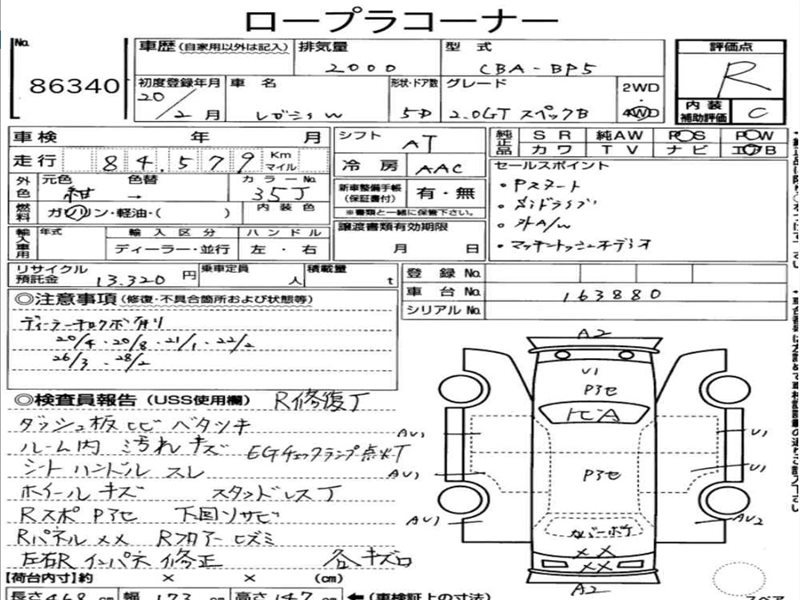 ロープラコーナー
No. 86340
車歴 (自家用以外は記入) 排気量 2000 型式 CBA-BP5
初度登録年月 20/2月 車名 レガシィW 形状・ドア数 5D グレード 2.0GT スペックB 2WD 4WD
評価点 R
内装補助評価 C
車検 年 月 シフト AT 純正品 SR 純AW PS PW
カワ TV ナビ エアB
走行 84,579 Km マイル 冷房 AAC
セールスポイント
・Pスタート
外色 元色 紺 色替 → カラーNo. 35J
新車整備手帳 (保証書付) 有・無
※書類と一緒に保管下さい。
燃料 ガソリン・軽油・( ) 内装色
・外A/W
輸入車用 年式 輸入区分 ハンドル 譲渡書類有効期限
ディーラー・並行 左・右 月 日
リサイクル預託金 13,320円 乗車定員 人 積載量 t
登録No.
車台No. 163880
シリアルNo.
◎注意事項 (修復・不具合箇所および状態等)
20/4.20/8.21/1.22/2
26/3.28/2
◎検査員報告 (USS使用欄) R修復了
ダッシュ板ヒビ ベタツキ
ルーム内 汚れ キズ EGチェックランプ点灯了
シート ハンドル スレ
ホイールキズ スタッドレス了
Rスポ Pアセ 下回りサビ
Rパネル XX Rフロアー ヒズミ
左右R インパネ 修正 各キズ凹
A2
U1
Pアセ
ヒA
AU1 U1
Pアセ
AU1 U1
AU1 AU2
カバーボケ
XX
XX
A2
【荷台内寸】約 × × (cm)
長さ468cm 幅173cm 高さ147cm ←(車検証上の寸法)
スペア